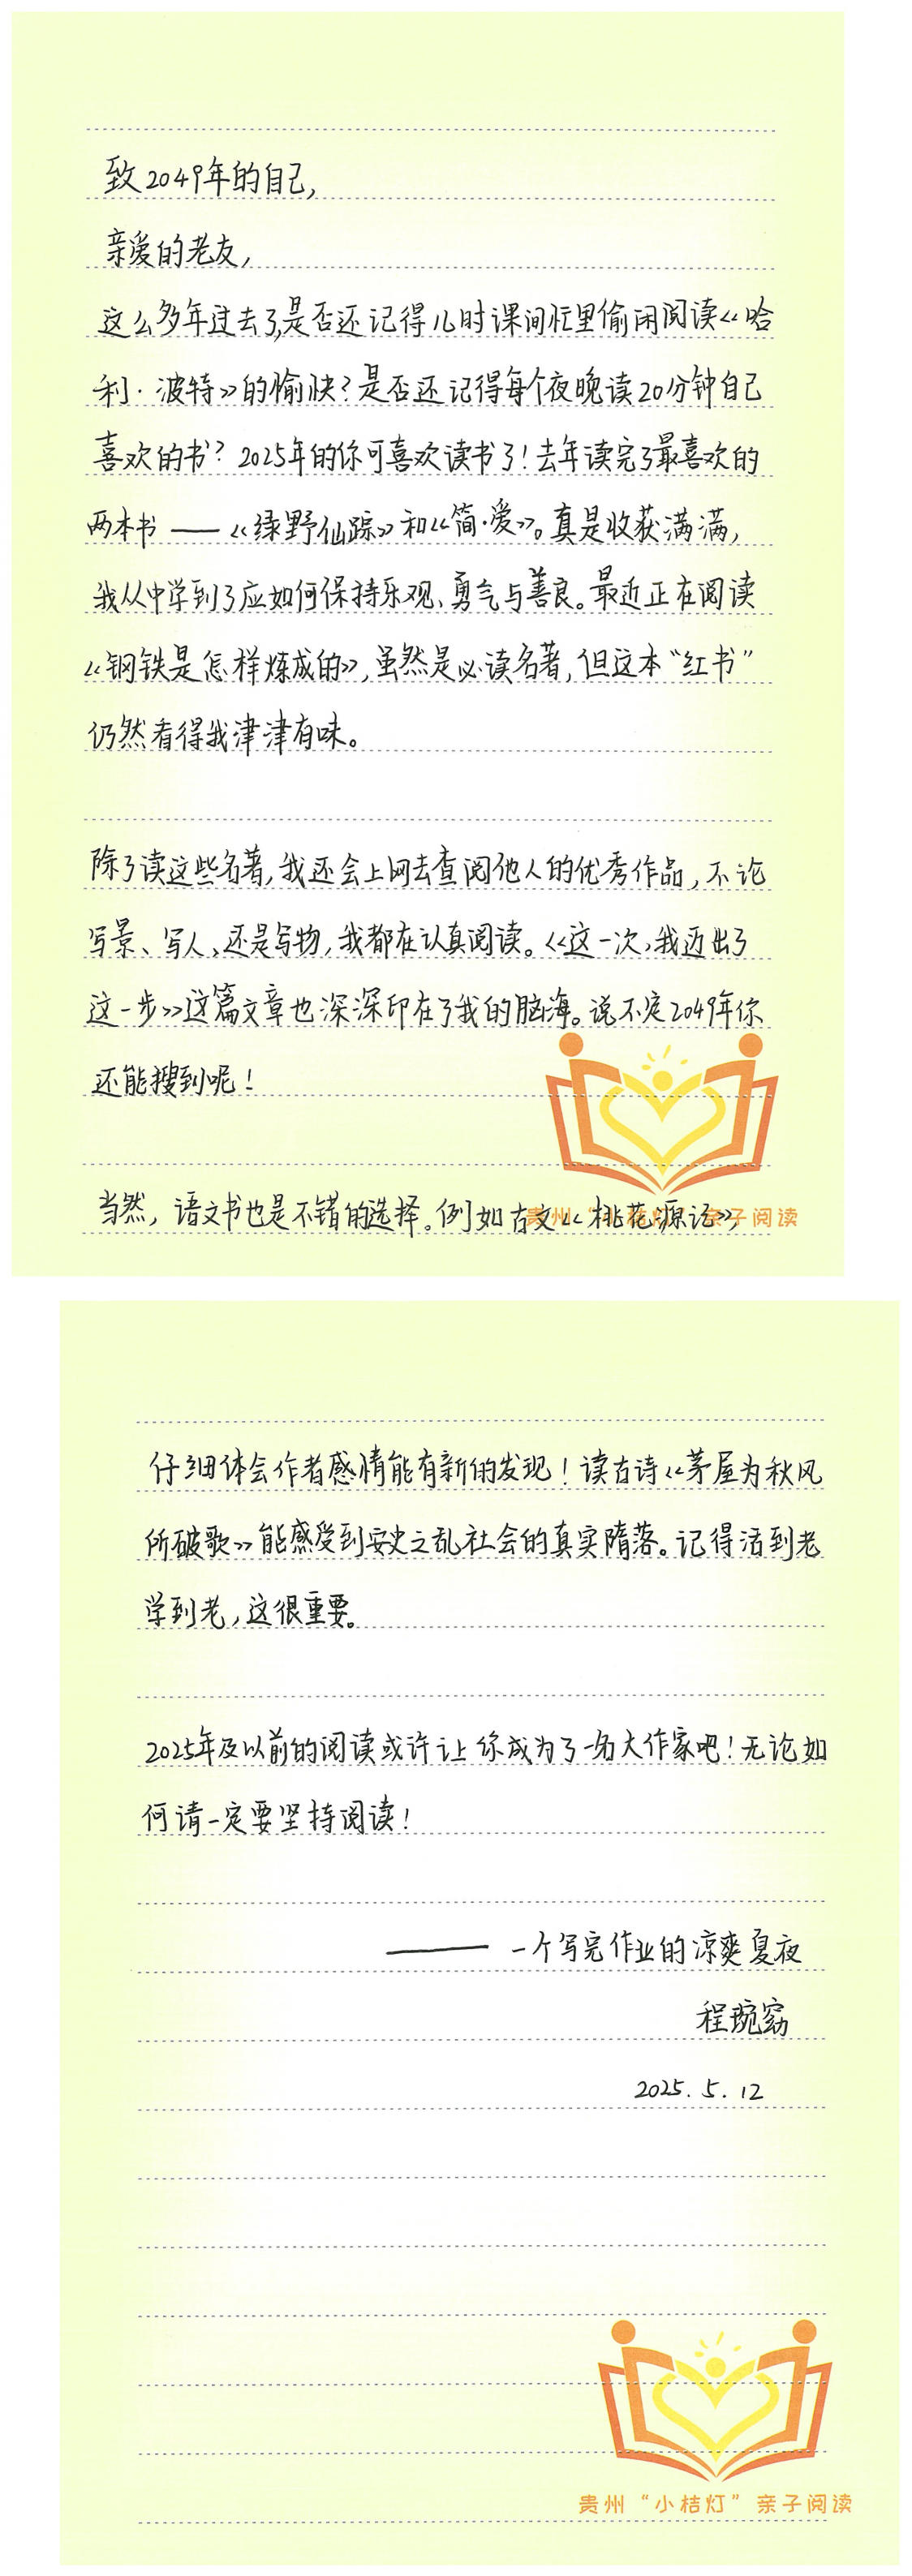 致2049年的自己,
亲爱的老友,
这么多年过去了,是否还记得儿时课间忙里偷闲阅读《哈
利·波特》的愉快?是否还记得每个夜晚读20分钟自己
喜欢的书?2025年的你可喜欢读书了!去年读完了最喜欢的
两本书——《绿野仙踪》和《简·爱》。真是收获满满,
我从中学到了应如何保持乐观、勇气与善良。最近正在阅读
《钢铁是怎样炼成的》,虽然是必读名著,但这本“红书”
仍然看得我津津有味。
除了读这些名著,我还会上网去查阅他人的优秀作品,不论
写景、写人、还是写物,我都在认真阅读。《这一次,我迈出了
这一步》这篇文章也深深印在了我的脑海。说不定2049年你
还能搜到呢!
当然,语文书也是不错的选择。例如古文《桃花源记》,
贵州“小桔灯”亲子阅读
仔细体会作者感情能有新的发现!读古诗《茅屋为秋风
所破歌》能感受到安史之乱社会的真实隋落。记得活到老
学到老,这很重要。
2025年及以前的阅读或许让你成为了一名大作家吧!无论如
何请一定要坚持阅读!
——一个写完作业的凉爽夏夜
程琬窈
2025.5.12
贵州“小桔灯”亲子阅读